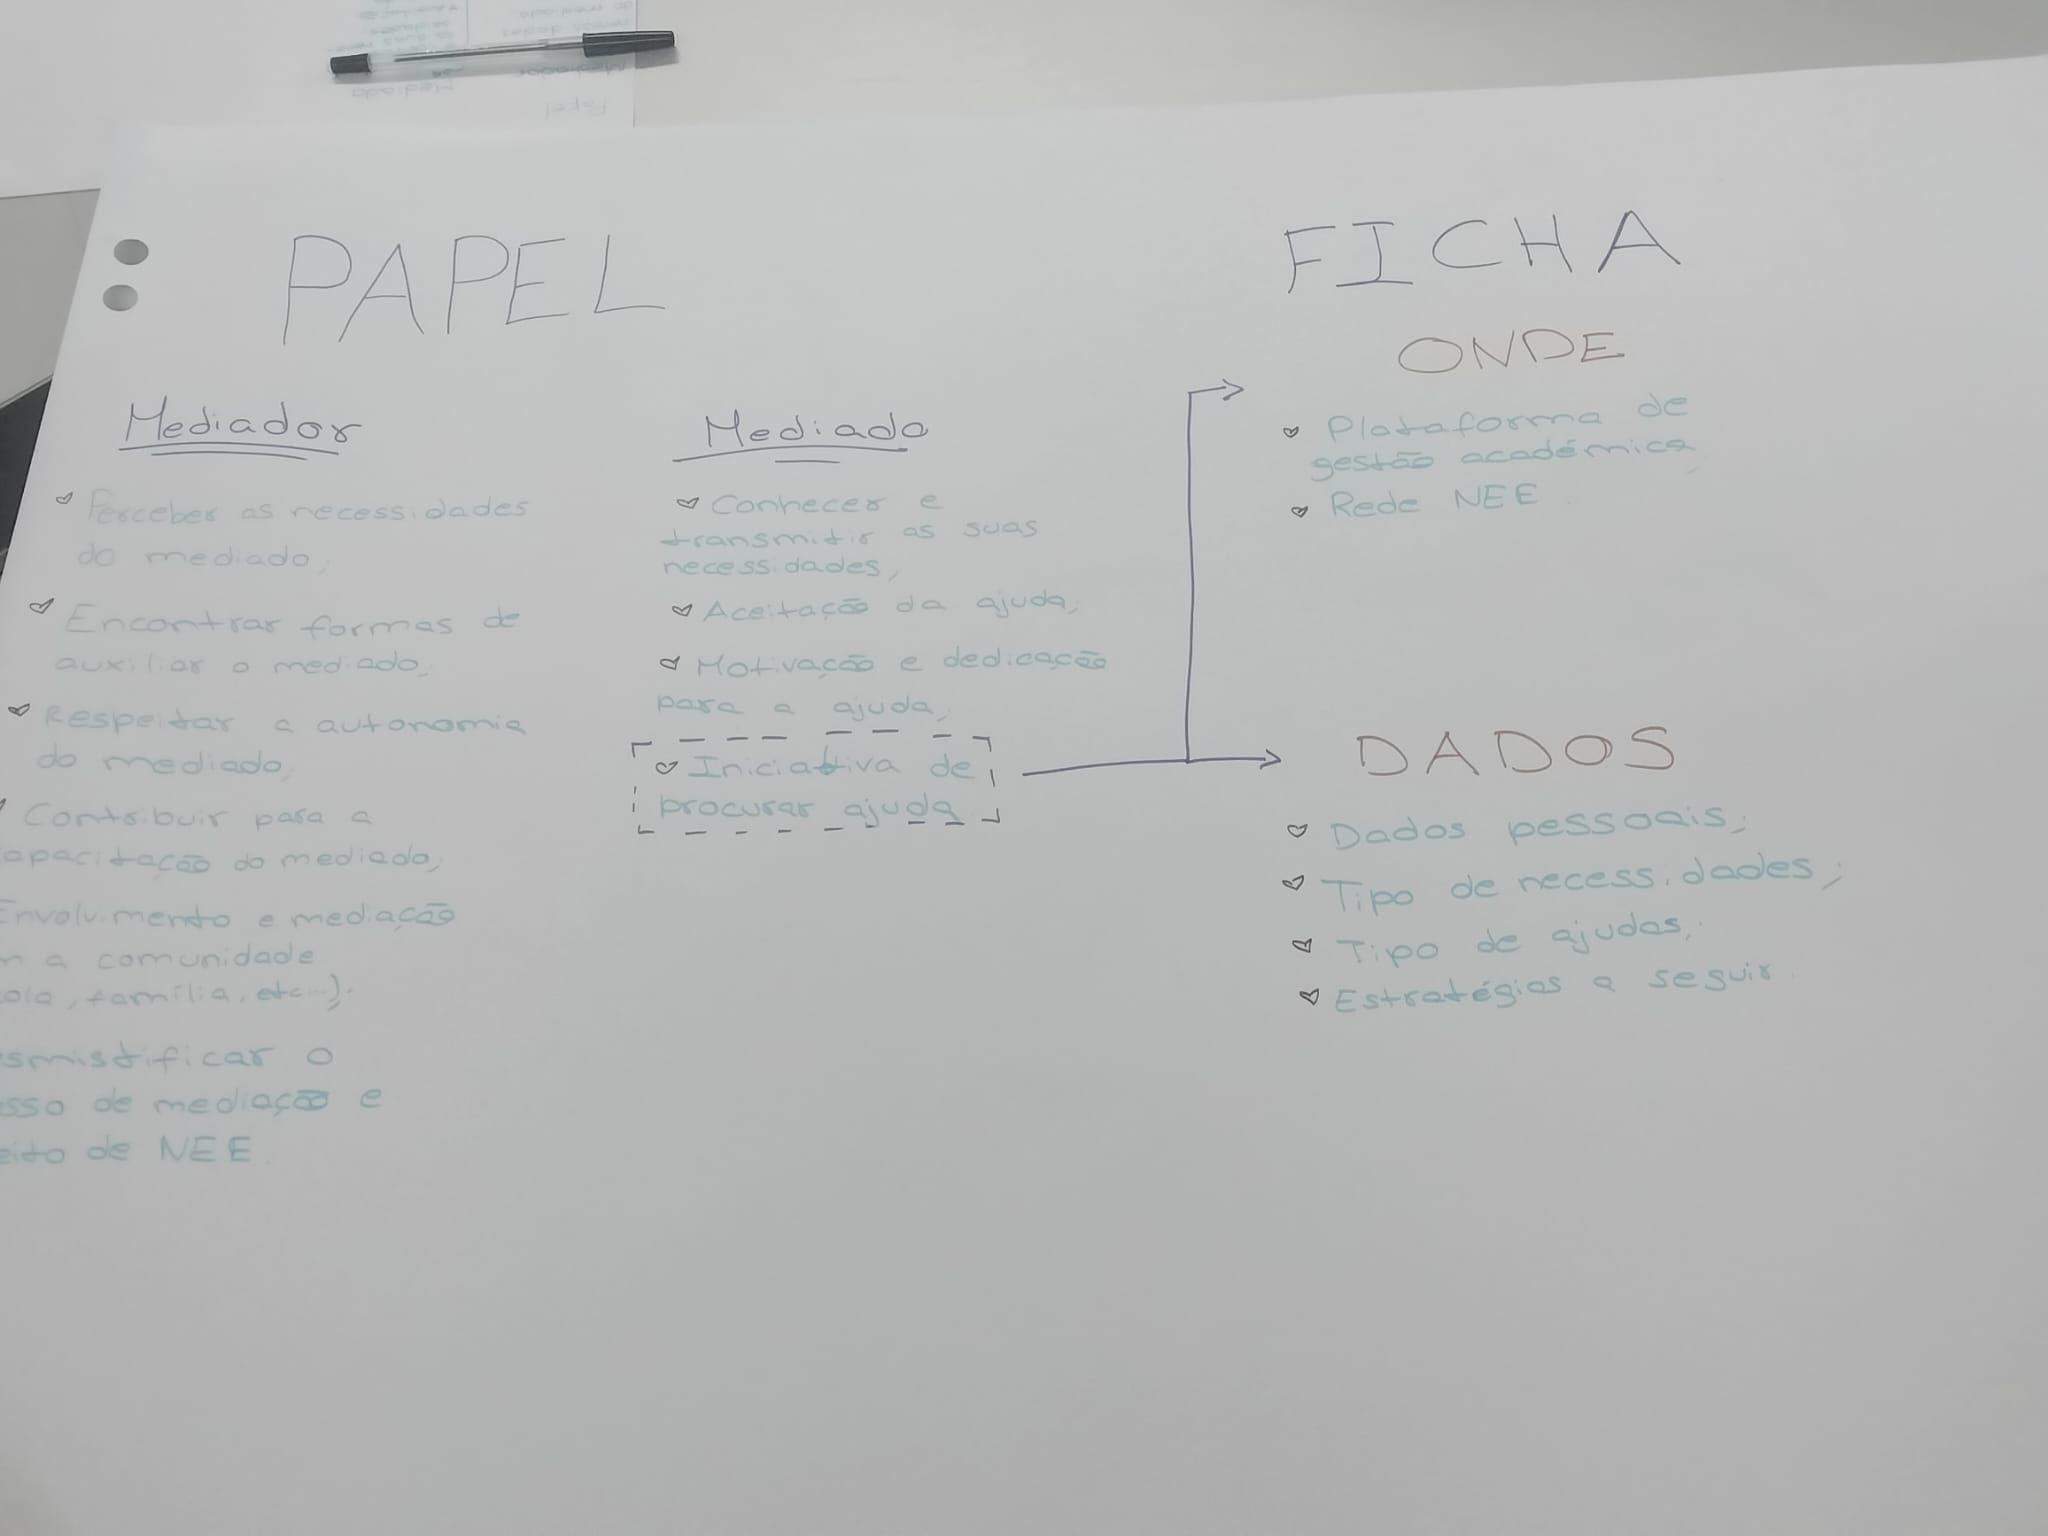 PAPEL
Mediador
Perceber as necessidades
do mediado;
Encontrar formas de
auxiliar o mediado;
Respeitar a autonomia
do mediado;
Contribuir para a
apacitação do mediado;
Envolvimento e mediação
a comunidade
ola, família, etc...).
smistificar o
sso de mediação e
eito de NEE.
Mediado
Conhecer e
transmitir as suas
necessidades;
Aceitação da ajuda;
Motivação e dedicação
para a ajuda;
Iniciativa de
procurar ajuda
FICHA
ONDE
Plataforma de
gestão académica;
Rede NEE.
DADOS
Dados pessoais;
Tipo de necessidades;
Tipo de ajudas;
Estratégias a seguir.